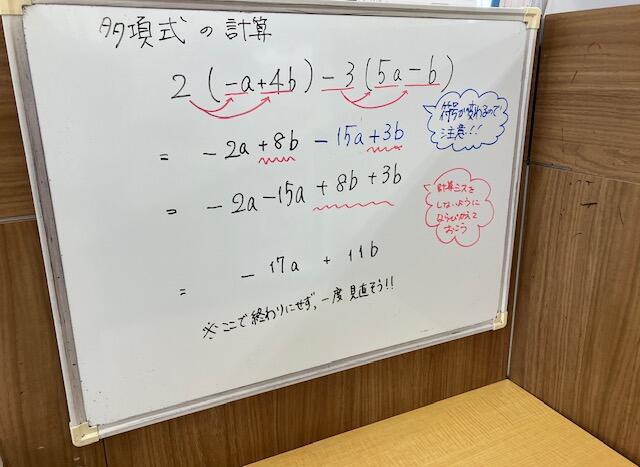 多項式の計算
2(-a+4b)-3(5a-b)
= -2a+8b -15a+3b
符号が変わるので
注意!!
= -2a-15a+8b+3b
計算ミスを
しないように
ならびかえて
おこう
= -17a+11b
※ここで終わりにせず、一度見直そう!!